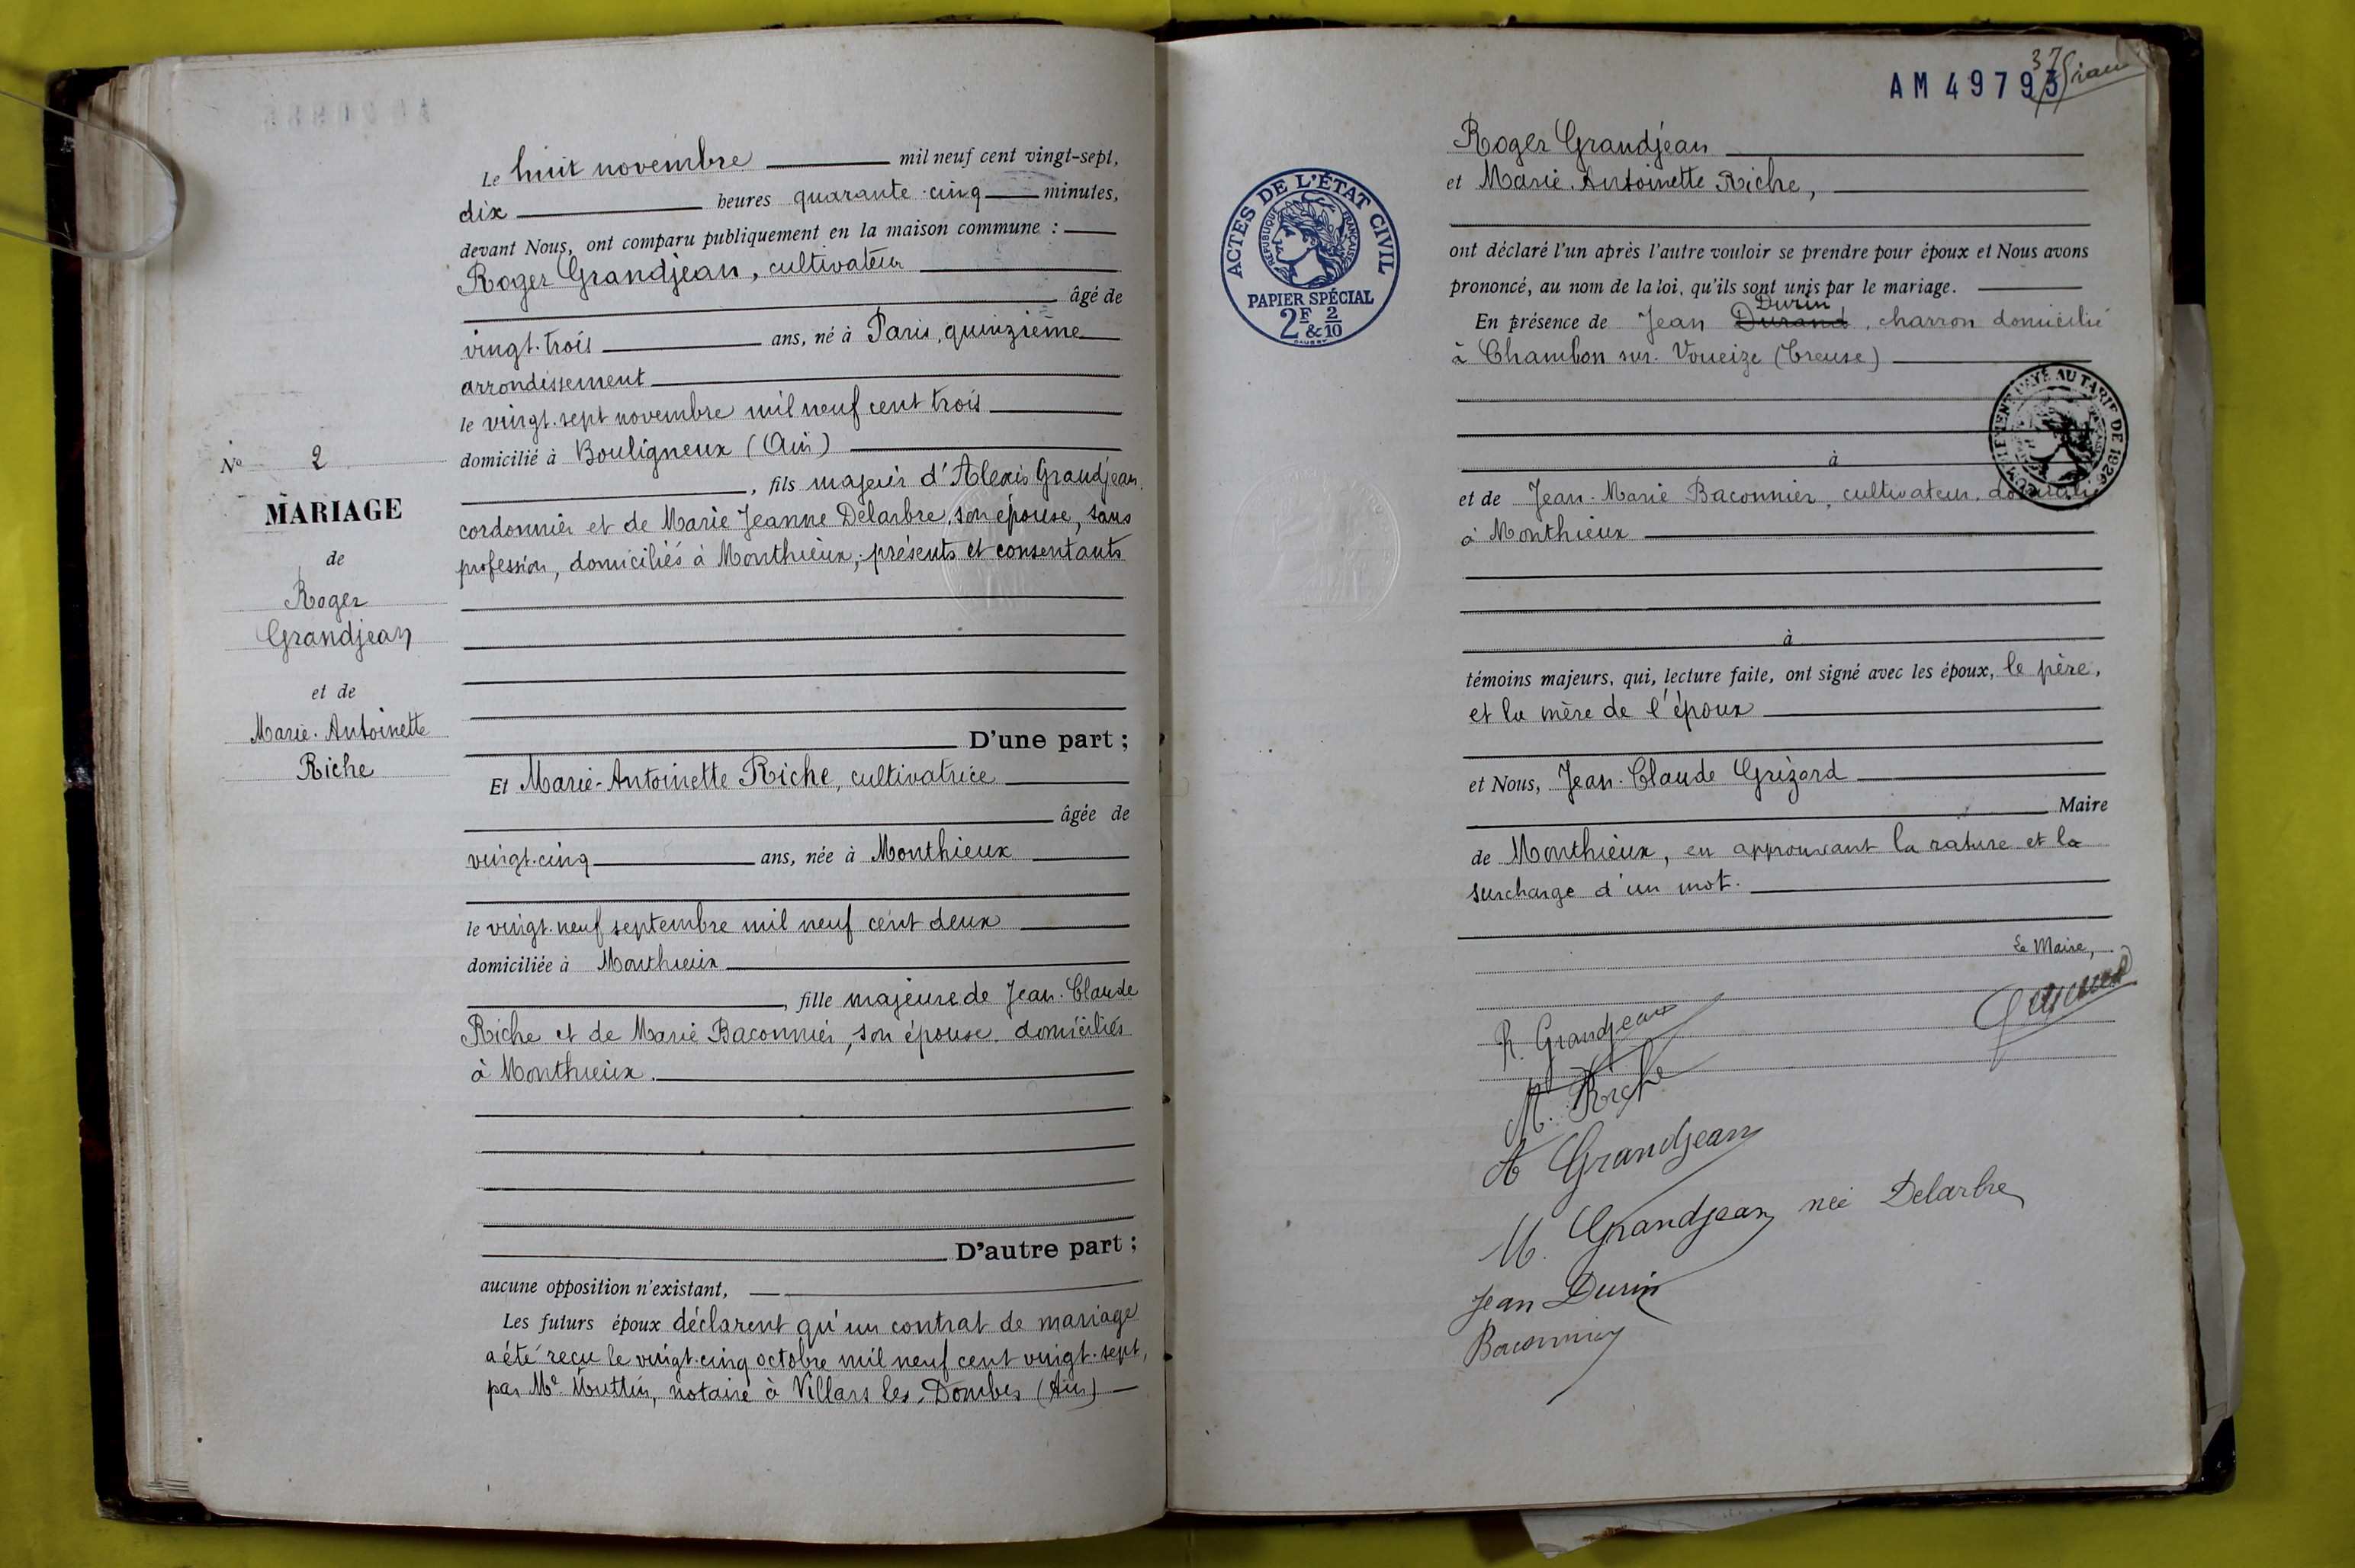 Le huit novembre mil neuf cent vingt-sept,
dix heures quarante-cinq minutes,
devant Nous, ont comparu publiquement en la maison commune :
Roger Grandjean, cultivateur
âgé de
vingt-trois ans, né à Paris, quinzième
arrondissement
le vingt-sept novembre mil neuf cent trois
domicilié à Bouligneux (Ain)
, fils majeur d'Alexis Grandjean,
cordonnier et de Marie Jeanne Delarbre, son épouse, sans
profession, domiciliés à Monthieux, présents et consentants
D'une part ;
Et Marie-Antoinette Riche, cultivatrice
âgée de
vingt-cinq ans, née à Monthieux
le vingt-neuf septembre mil neuf cent deux
domiciliée à Monthieux
, fille majeure de Jean-Claude
Riche et de Marie Baconnier, son épouse, domiciliés
à Monthieux.
D'autre part ;
aucune opposition n'existant,
Les futurs époux déclarent qu'un contrat de mariage
a été reçu le vingt-cinq octobre mil neuf cent vingt-sept,
par Me Muttin, notaire à Villars les Dombes (Ain)
No 2
MARIAGE
de
Roger
Grandjean
et de
Marie-Antoinette
Riche
37
AM 49793
Roger Grandjean
et Marie-Antoinette Riche,
ont déclaré l'un après l'autre vouloir se prendre pour époux et Nous avons
prononcé, au nom de la loi, qu'ils sont unis par le mariage.
Durin
En présence de Jean Durand, charron domicilié
à Chambon sur-Voueize (Creuse)
à
et de Jean-Marie Baconnier, cultivateur, domicilié
à Monthieux
à
témoins majeurs, qui, lecture faite, ont signé avec les époux, le père,
et la mère de l'époux
et Nous, Jean-Claude Grizard
Maire
de Monthieux, en approuvant la rature et la
surcharge d'un mot.
Le Maire,
R. Grandjean
M. Riche
A Grandjean
M. Grandjean née Delarbre
Jean Durin
Baconnier
ACTES DE L'ÉTAT CIVIL
REPUBLIQUE FRANÇAISE
PAPIER SPÉCIAL
2F & 2/10
PAYÉ AU TARIF DE 1926